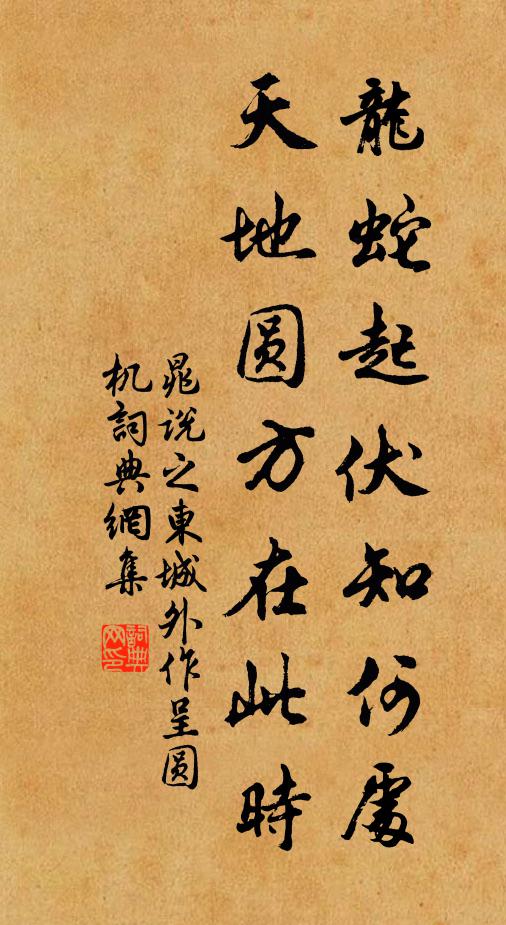 龍蛇起伏知何處
天地圓方在此時
晁説之東城外作呈圓
机詞典網集
詞典
网印